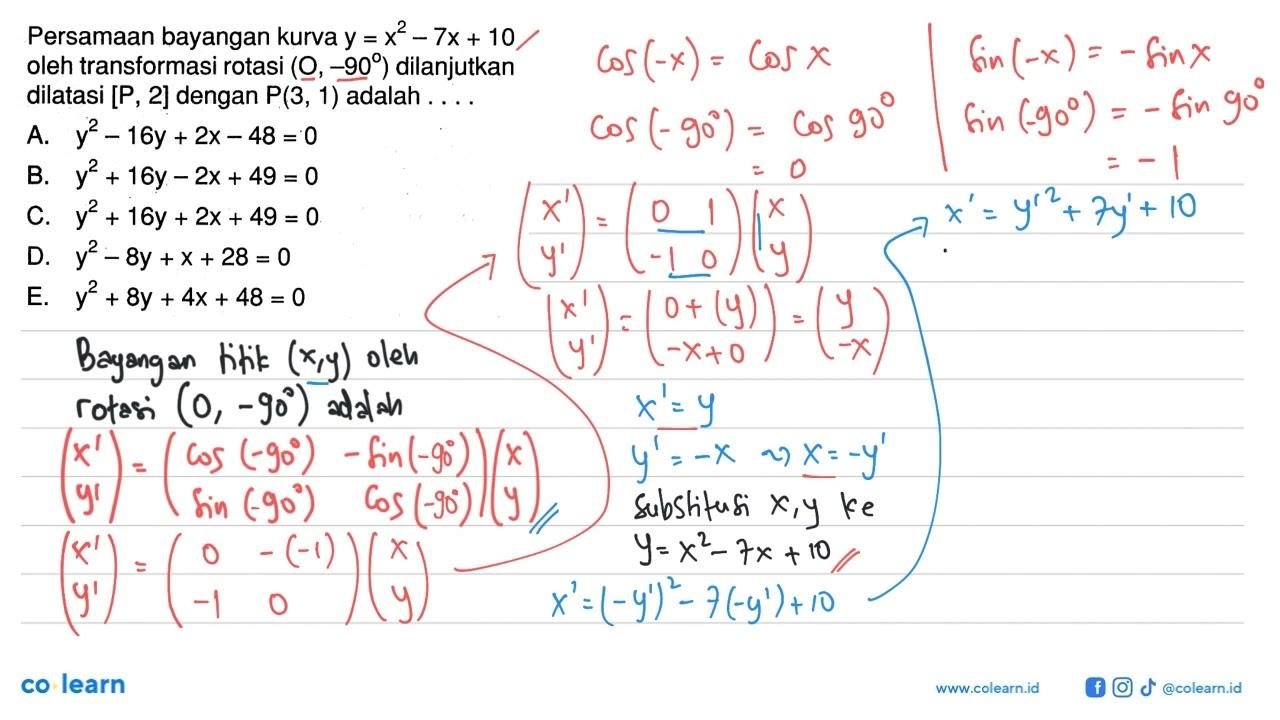 Persamaan bayangan kurva y = x² – 7x + 10
oleh transformasi rotasi (O, –90⁰) dilanjutkan
dilatasi [P, 2] dengan P(3, 1) adalah . . . .
A. y² – 16y + 2x – 48 = 0
B. y² + 16y – 2x + 49 = 0
C. y² + 16y + 2x + 49 = 0
D. y² – 8y + x + 28 = 0
E. y² + 8y + 4x + 48 = 0
Bayangan titik (x,y) oleh
rotasi (0, -90°) adalah
(x' y') = (cos (-90°) -sin(-90°) sin (-90°) cos (-90°)) (x y)
(x' y') = (0 -(-1) -1 0) (x y)
cos(-x) = cos x
cos (-90°) = cos 90°
= 0
sin(-x) = -sin x
sin (-90°) = - sin 90°
= -1
(x' y') = (0 1 -1 0) (x y)
(x' y') = (0+(y) -x+0) = (y -x)
x' = y
y' = -x ~> x = -y'
Substitusi x,y ke
y = x² - 7x + 10
x' = (-y')² - 7(-y') + 10
x' = y'² + 7y' + 10
co learn
www.colearn.id
@colearn.id